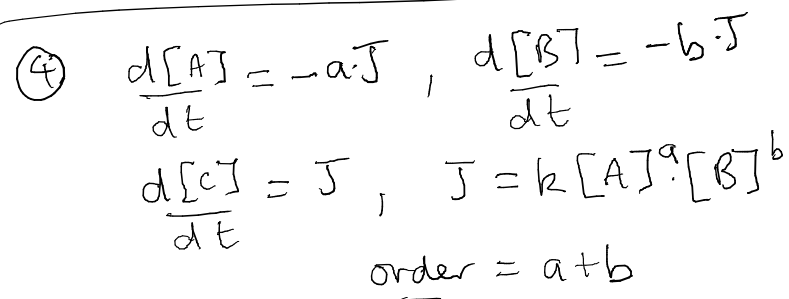 ④ d[A]/dt = -a·J , d[B]/dt = -b·J
d[C]/dt = J , J = k[A]ᵃ·[B]ᵇ
order = a+b